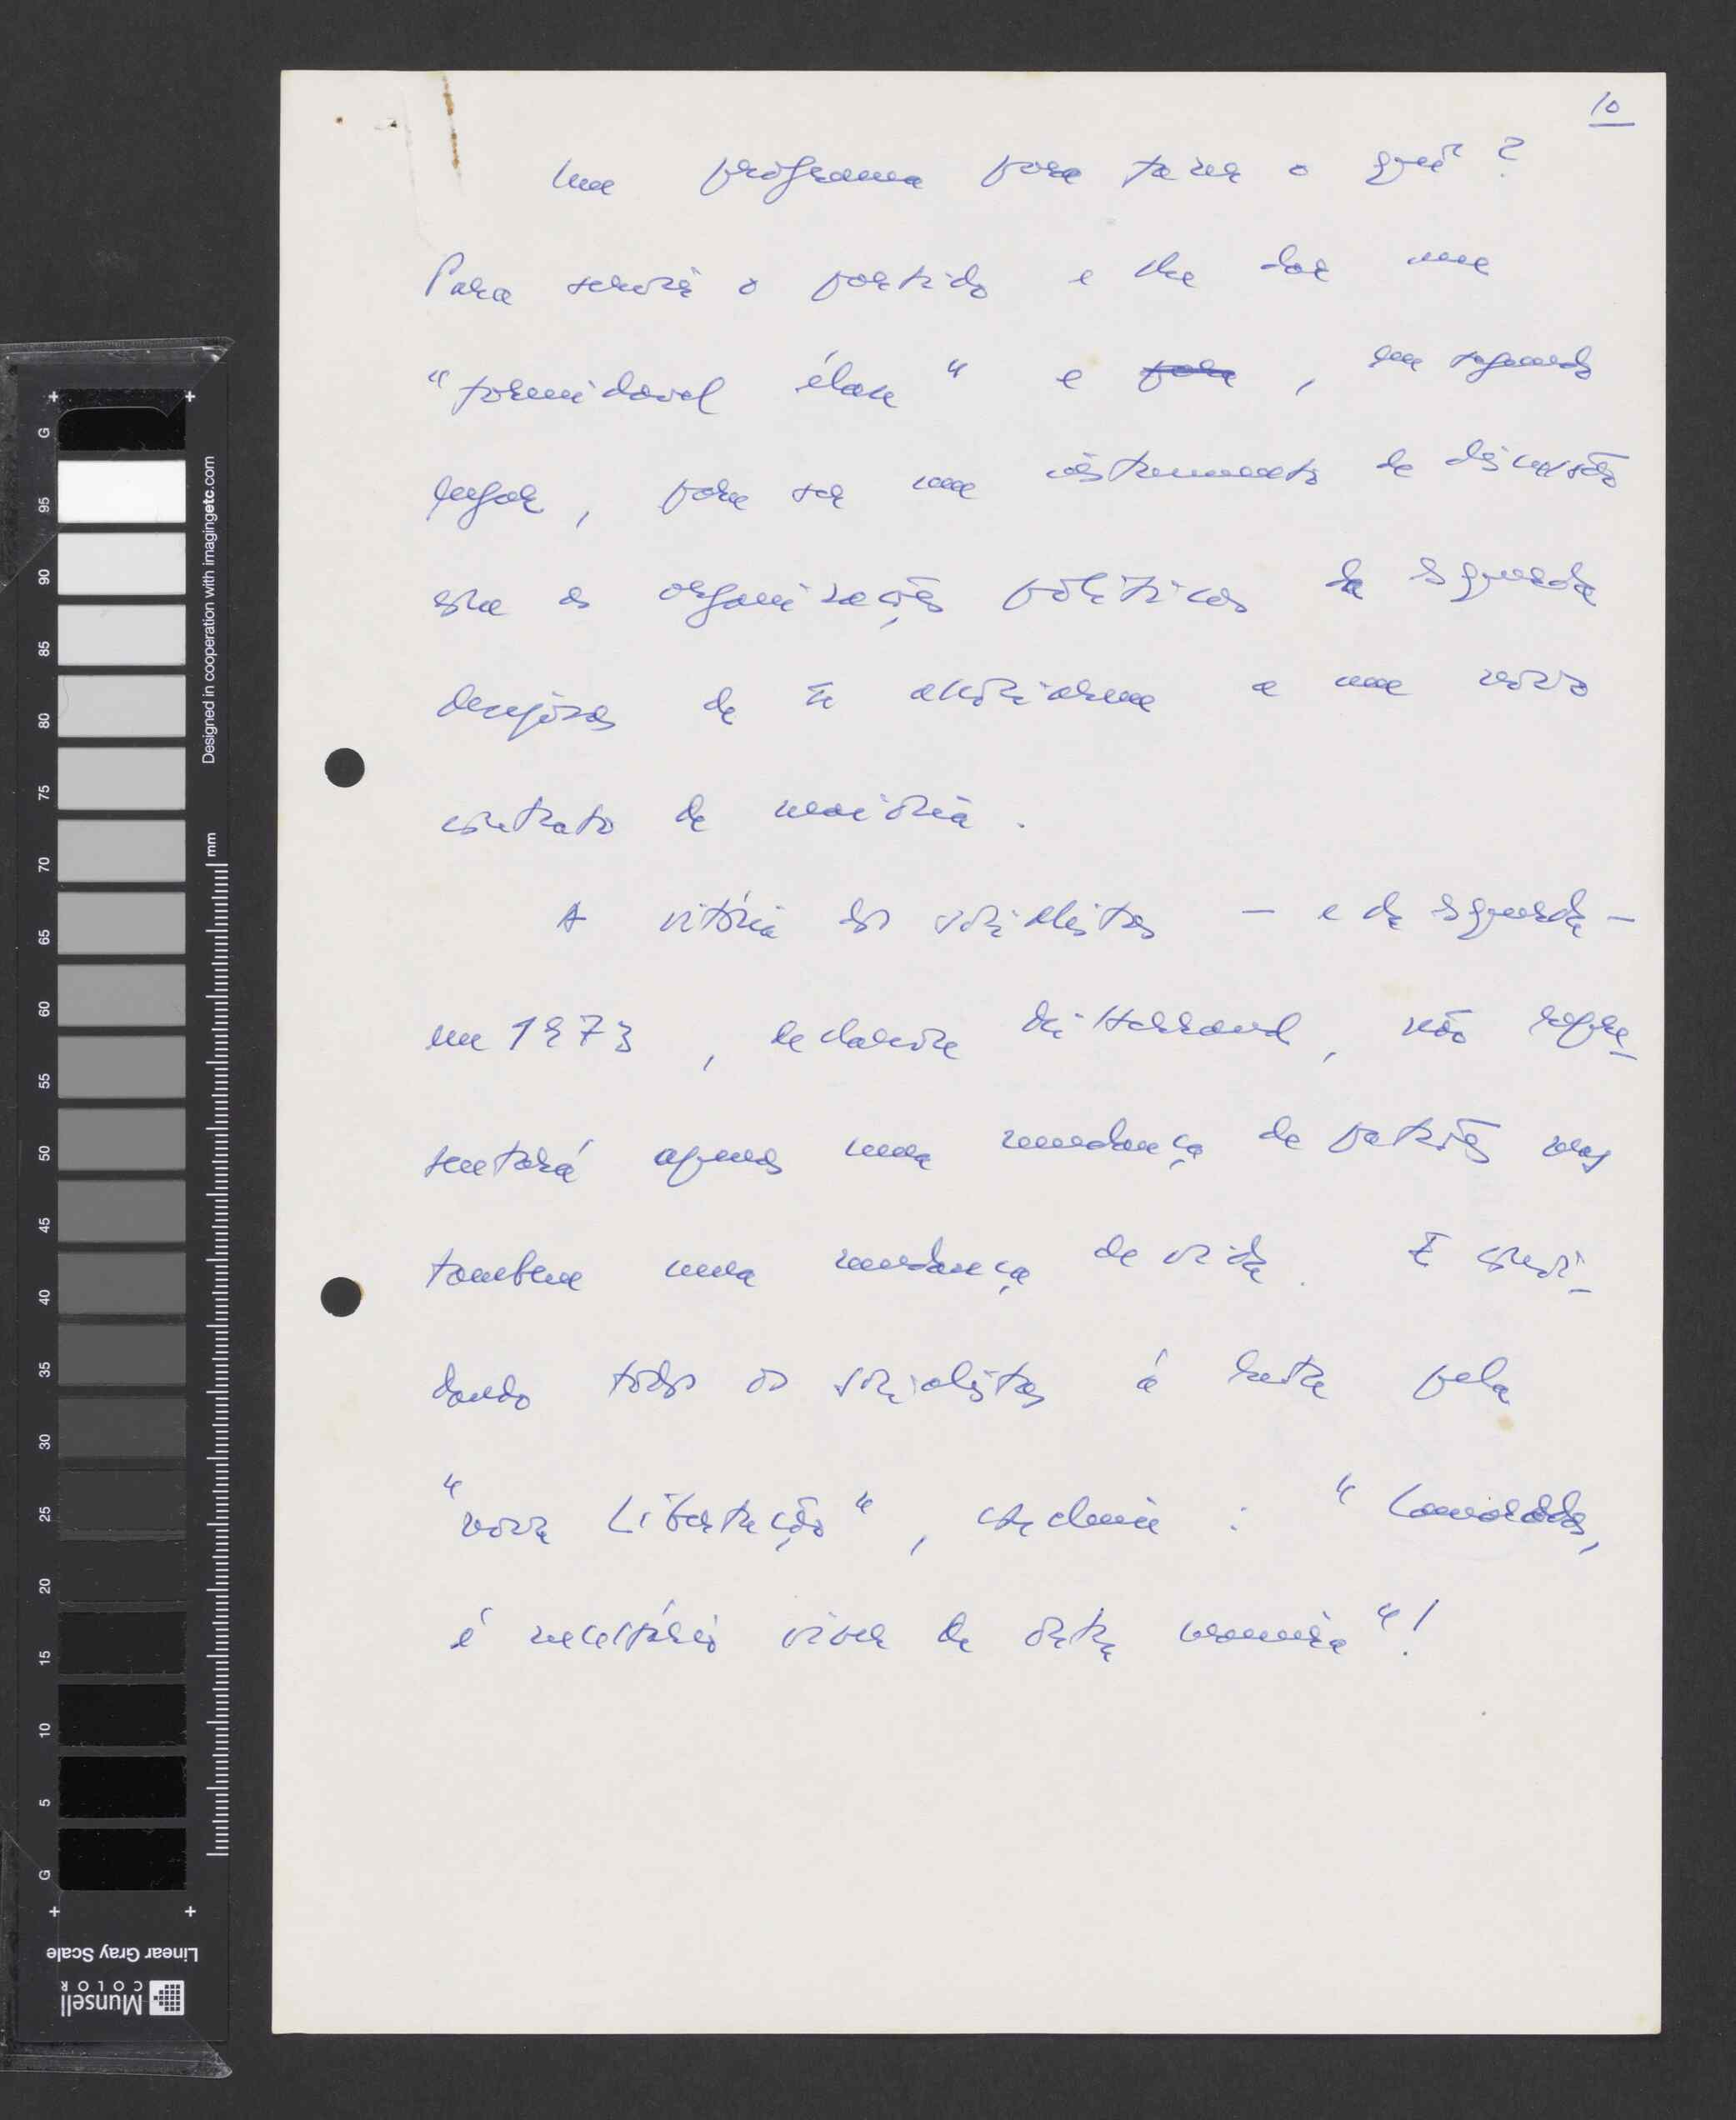 10
Um programa para fazer o quê?
Para servir o partido e lhe dar um
"formidavel élan" e para, em segundo
lugar, para ser um instrumento de discussão
com as organizações politicas da esquerda
desejosas de se associarem a um novo
contrato de maioria.
A vitória dos socialistas — e da esquerda —
em 1973, declarou Mitterrand, não repre-
sentará apenas uma mudança de patrões mas
tambem uma mudança de vida. E convi-
dando todos os socialistas á luta pela
"nova Libertação", exclamou: "Camaradas,
é necessário viver de outra maneira"!
G
95
90
85
80
75
70
65
60
55
50
45
40
35
30
25
20
15
10
5
G
Designed in cooperation with imagingetc.com
mm
Linear Gray Scale
Munsell
COLOR